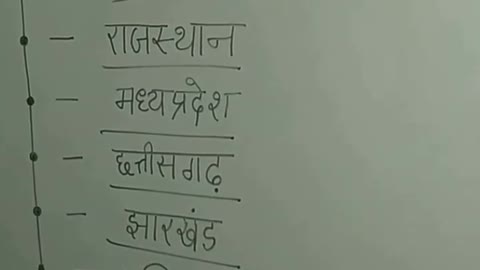 - राजस्थान
- मध्यप्रदेश
- छत्तीसगढ़
- झारखंड